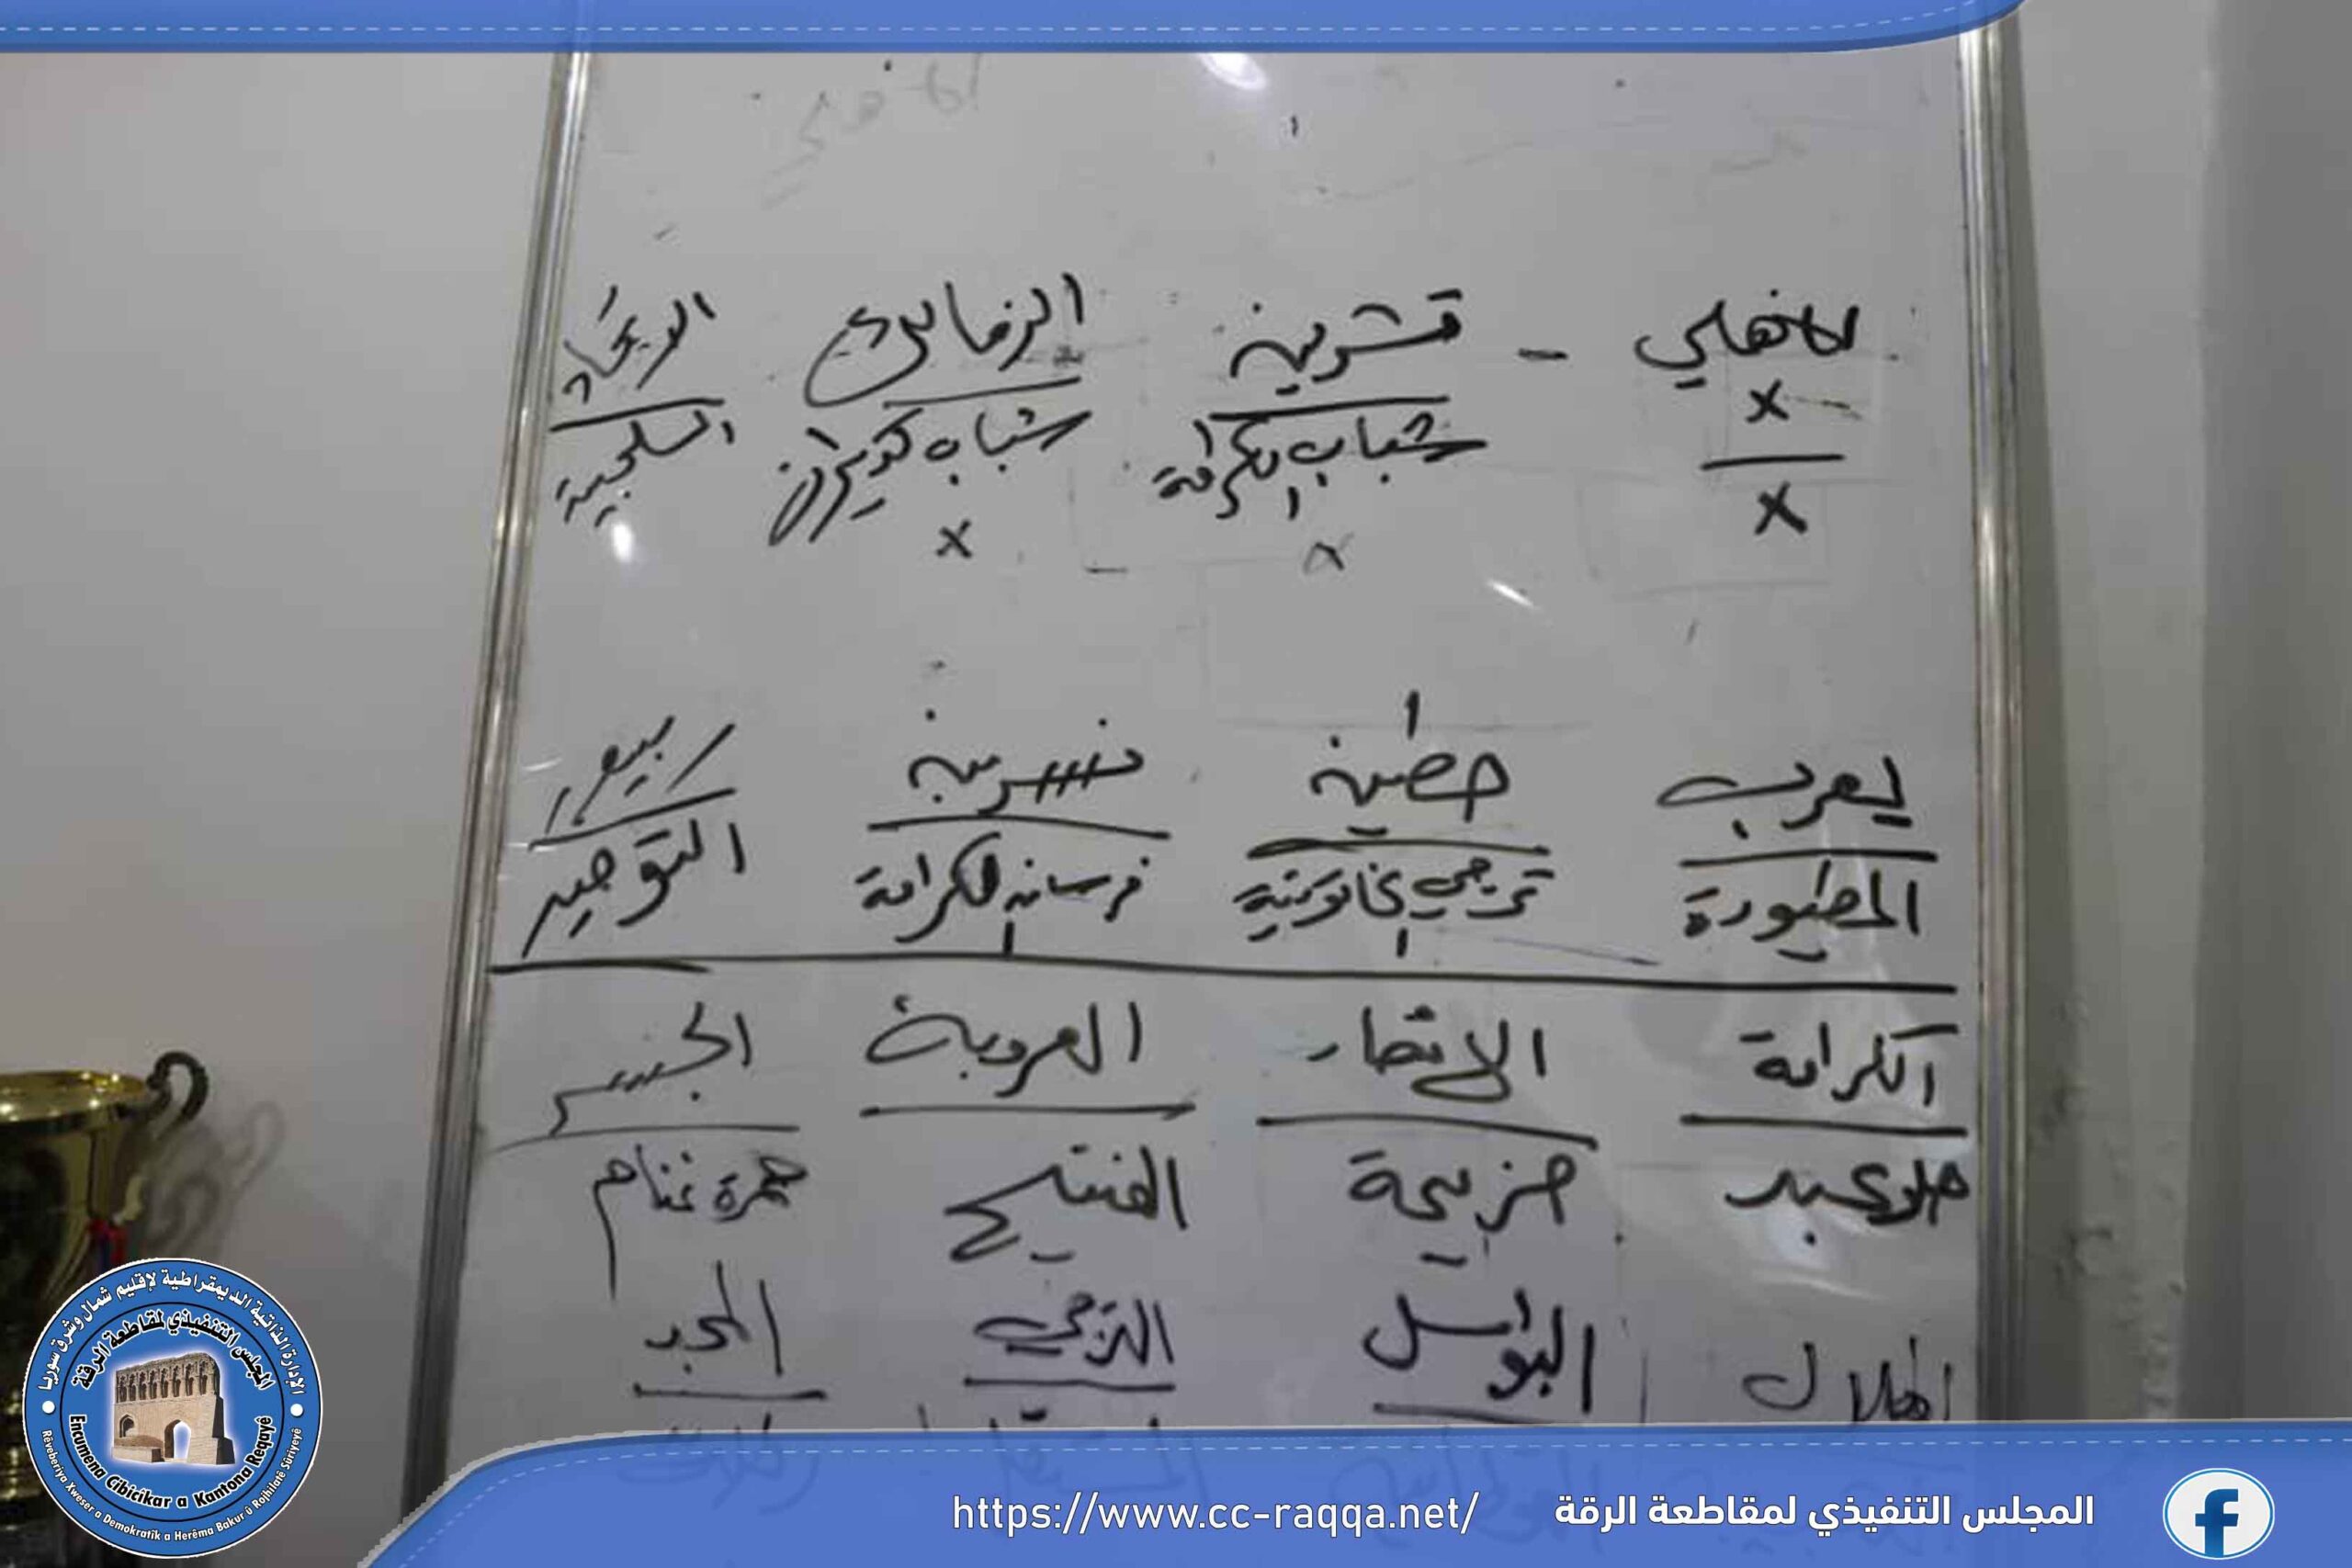 الأهلي - تشرين الزمالك الريحان
x شباب الكرامة شباب كديران السلحبية
x x x
يعرب حطين نسرين ريبير
المطيورة ترجي خاتونية فرسان الكرامة التوحيد
الكرامة الانتصار العروبة الجسر
حاوي عبد مزيحة الفتيح حمرة غنام
الهلال البواسل الترجي المجد
الإدارة الذاتية الديمقراطية لإقليم شمال وشرق سوريا
المجلس التنفيذي لمقاطعة الرقة
Encumena Cibicikar a Kantona Reqayê
Rêveberiya Xweser a Demokratîk a Herêma Bakur û Rojhilatê Sûriyeyê
المجلس التنفيذي لمقاطعة الرقة https://www.cc-raqqa.net/